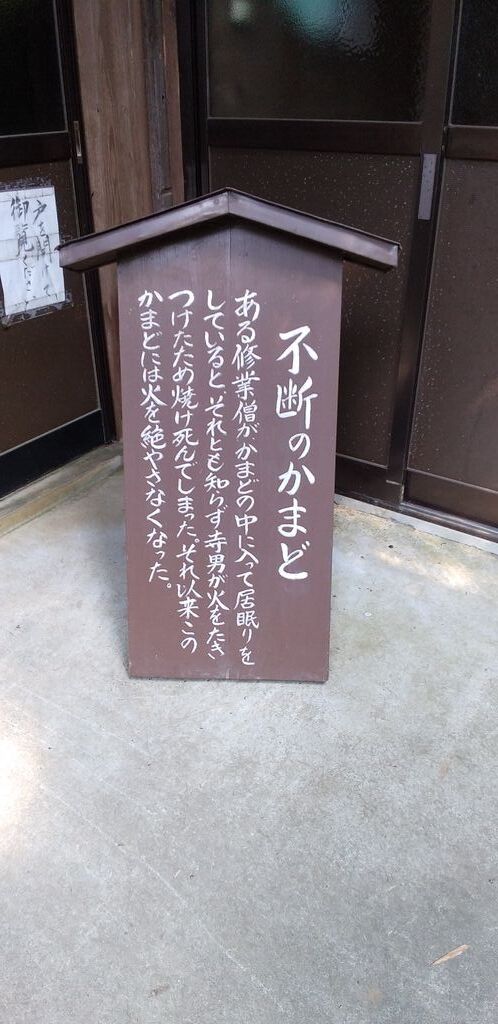 不断のかまど
ある修業僧が、かまどの中に入って居眠りを
していると、それとも知らず寺男が火をたき
つけたため焼け死んでしまった。それ以来この
かまどには火を絶やさなくなった。
戸を開けて
御覧ください